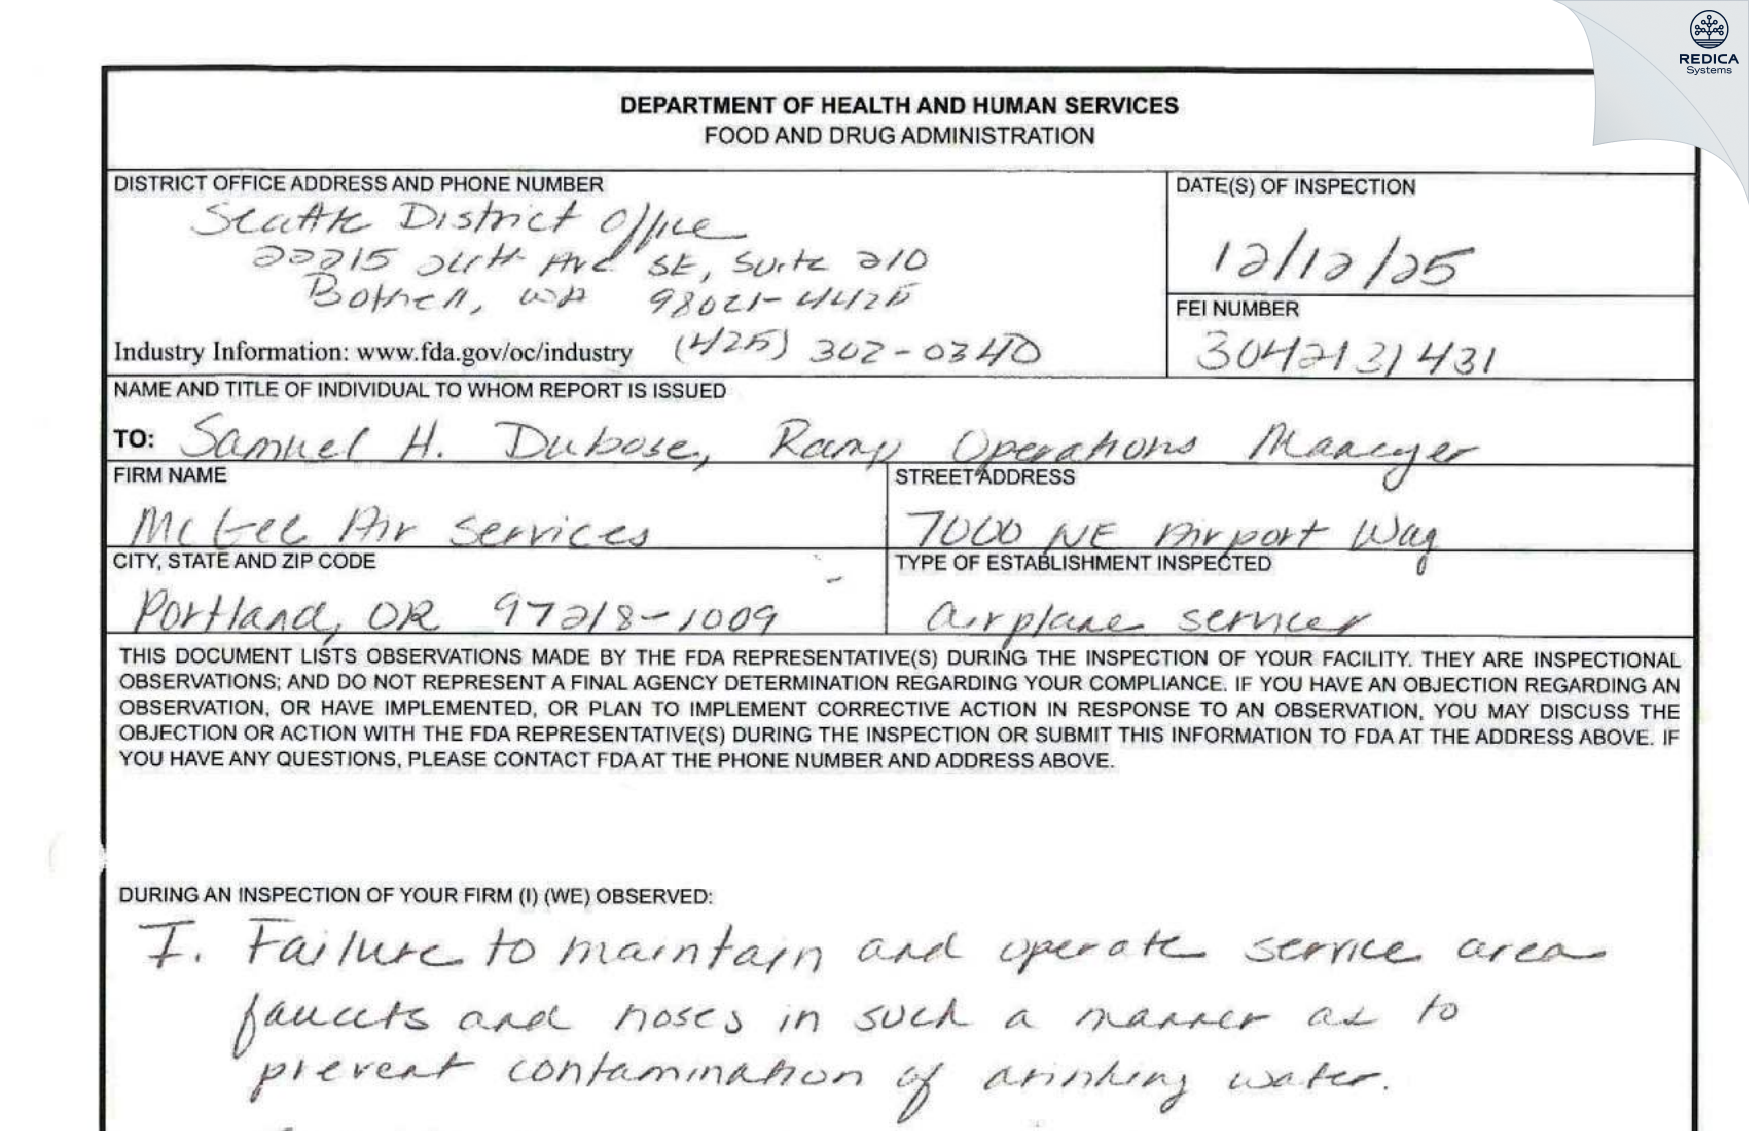 REDICA
Systems
DEPARTMENT OF HEALTH AND HUMAN SERVICES
FOOD AND DRUG ADMINISTRATION
DISTRICT OFFICE ADDRESS AND PHONE NUMBER
Seattle District Office
22215 26th Ave SE, Suite 210
Bothell, WA 98021-4425
Industry Information: www.fda.gov/oc/industry (425) 302-0340
DATE(S) OF INSPECTION
12/12/25
FEI NUMBER
3042131431
NAME AND TITLE OF INDIVIDUAL TO WHOM REPORT IS ISSUED
TO: Samuel H. Dubose, Ramp Operations Manager
FIRM NAME
McGee Air Services
STREET ADDRESS
7000 NE Airport Way
CITY, STATE AND ZIP CODE
Portland, OR 97218-1009
TYPE OF ESTABLISHMENT INSPECTED
airplane servicer
THIS DOCUMENT LISTS OBSERVATIONS MADE BY THE FDA REPRESENTATIVE(S) DURING THE INSPECTION OF YOUR FACILITY. THEY ARE INSPECTIONAL
OBSERVATIONS; AND DO NOT REPRESENT A FINAL AGENCY DETERMINATION REGARDING YOUR COMPLIANCE. IF YOU HAVE AN OBJECTION REGARDING AN
OBSERVATION, OR HAVE IMPLEMENTED, OR PLAN TO IMPLEMENT CORRECTIVE ACTION IN RESPONSE TO AN OBSERVATION, YOU MAY DISCUSS THE
OBJECTION OR ACTION WITH THE FDA REPRESENTATIVE(S) DURING THE INSPECTION OR SUBMIT THIS INFORMATION TO FDA AT THE ADDRESS ABOVE. IF
YOU HAVE ANY QUESTIONS, PLEASE CONTACT FDA AT THE PHONE NUMBER AND ADDRESS ABOVE.
DURING AN INSPECTION OF YOUR FIRM (I) (WE) OBSERVED:
I. Failure to maintain and operate service area
faucets and hoses in such a manner as to
prevent contamination of drinking water.